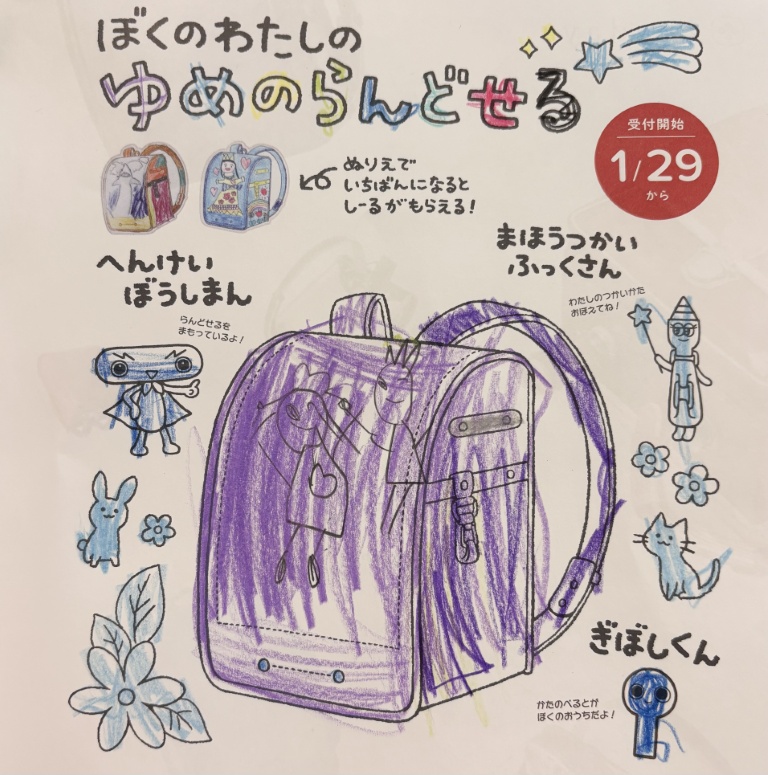 ぼくのわたしの
ゆめのらんどせる
受付開始
1/29
から
ぬりえで
いちばんになると
しーるがもらえる!
へんけい
ぼうしまん
らんどせるを
まもっているよ!
まほうつかい
ふっくさん
わたしのつかいかた
おぼえてね!
ぎぼしくん
かたのべるとが
ぼくのおうちだよ!